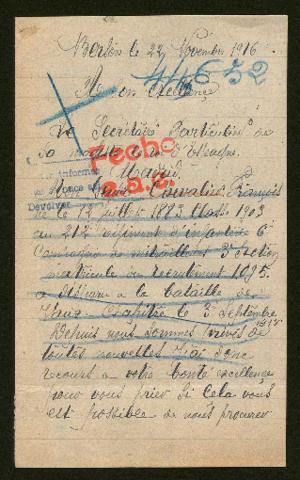 le 22 Novembre 1916
44652
Mon Excellence
Le Secrétaire Particulier de
sa majesté le roi d'Espagne
Madrid
Fecho
informer
Devolver
né le 12 juillet 1883 classe 1903
au 212e régiment d'infanterie 6e
compagnie de mitrailleuses 3e section
matricule de recrutement 1095.
a disparu a la bataille de
le 3 Septembre
1917
Depuis nous sommes privés de
toutes nouvelles J'ai donc
recours a votre bonté excellence
pour vous prier si cela vous
est possible de nous procurer